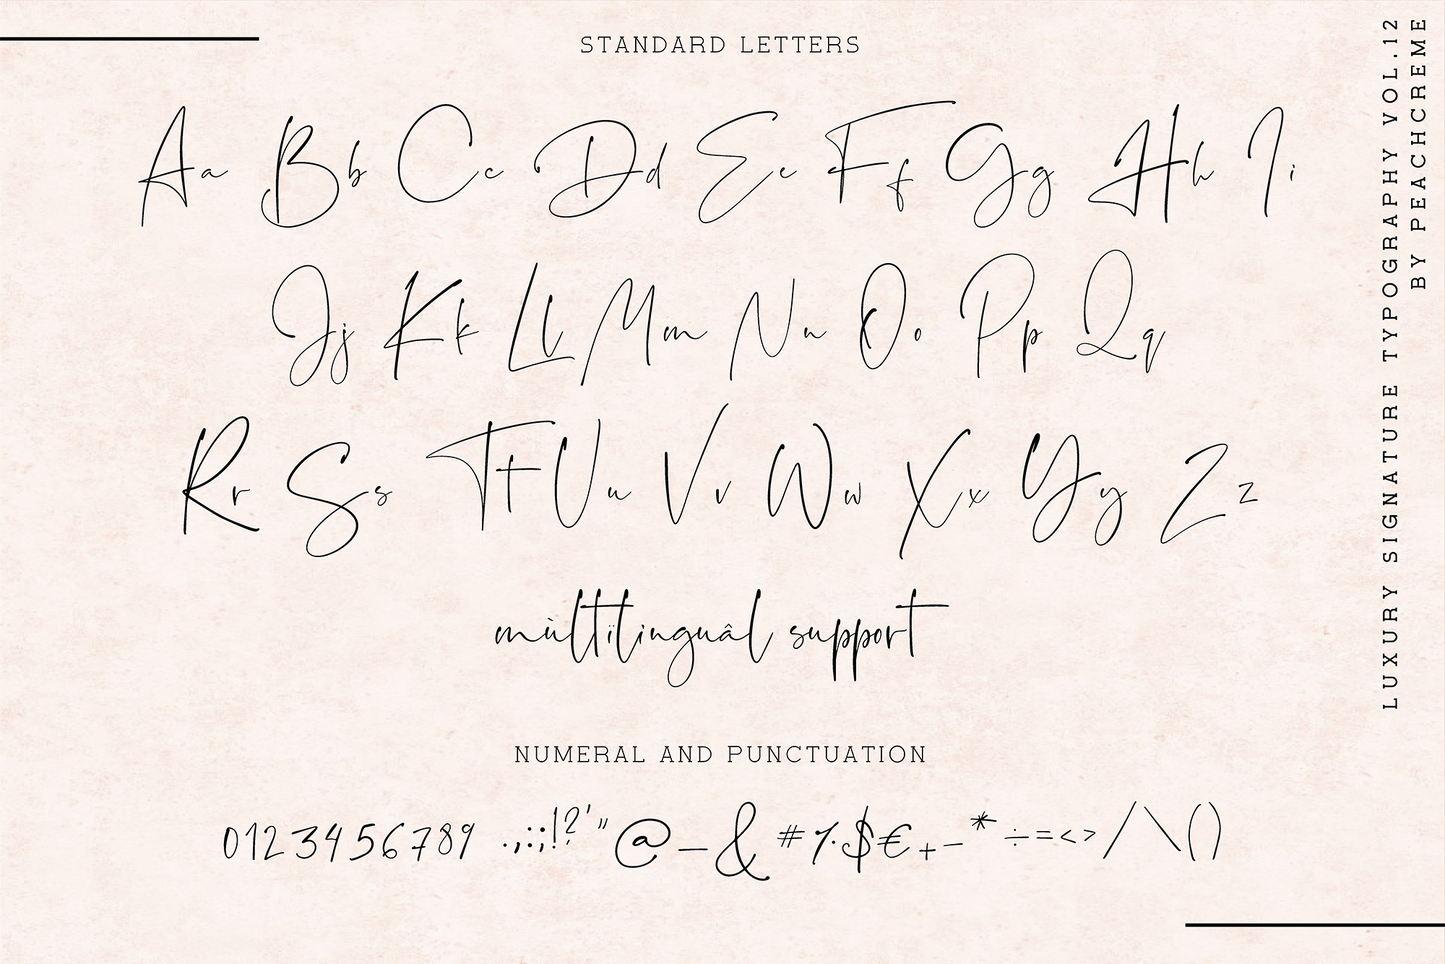 STANDARD LETTERS
Aa Bb Cc Dd Ee Ff Gg Hh Ii
Jj Kk Ll Mm Nn Oo Pp Qq
Rr Ss Tt Uu Vv Ww Xx Yy Zz
mùltïlinguâl support
NUMERAL AND PUNCTUATION
0123456789 .,:;!?'"@_&#%$€+-*÷=<>/\()
LUXURY SIGNATURE TYPOGRAPHY VOL.12
BY PEACHCREME